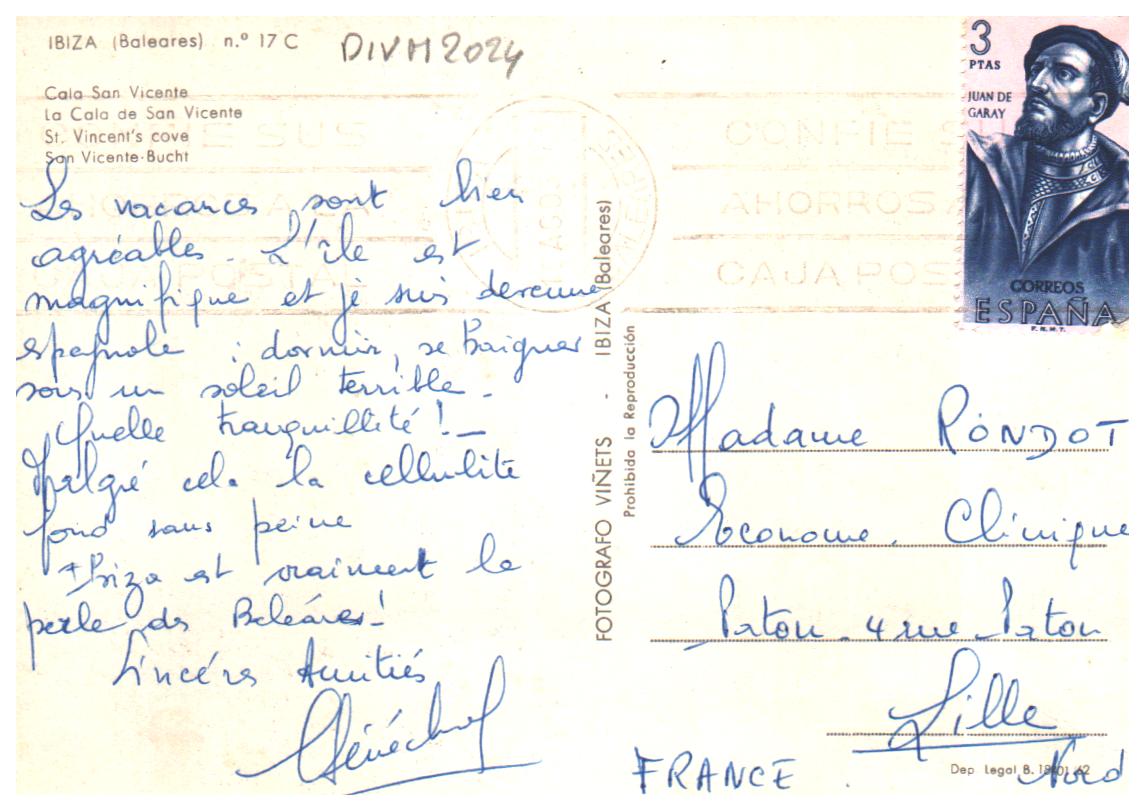 IBIZA (Baleares) n.º 17 C
DIVM2024
Cala San Vicente
La Cala de San Vicente
St. Vincent's cove
San Vicente-Bucht
Les vacances sont bien
agréables. L'île est
magnifique et je suis devenue
espagnole : dormir, se baigner
sous un soleil terrible.
Quelle tranquillité !
Malgré cela la cellulite
fond sans peine
Ibiza est vraiment la
perle des Baléares!
Sincères Amitiés
CONFIE SUS
AHORROS A LA
CAJA POSTAL
FOTOGRAFO VIÑETS - IBIZA (Baleares)
Prohibida la Reproducción
CONFIE SU
AHORROS A
CAJA POS
3
PTAS
JUAN DE
GARAY
CORREOS
ESPAÑA
F.N.M.T.
Madame RONDOT
Econome. Clinique
4 rue
Lille
FRANCE. Nord
Dep Legal B.